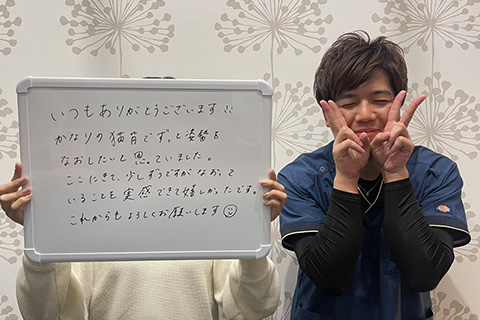 いつもありがとうございます!!
かなりの猫背でずっと姿勢を
なおしたいと思っていました。
ここにきて、少しずつですがなおって
いることを実感できて嬉しかったです。
これからもよろしくお願いします☺